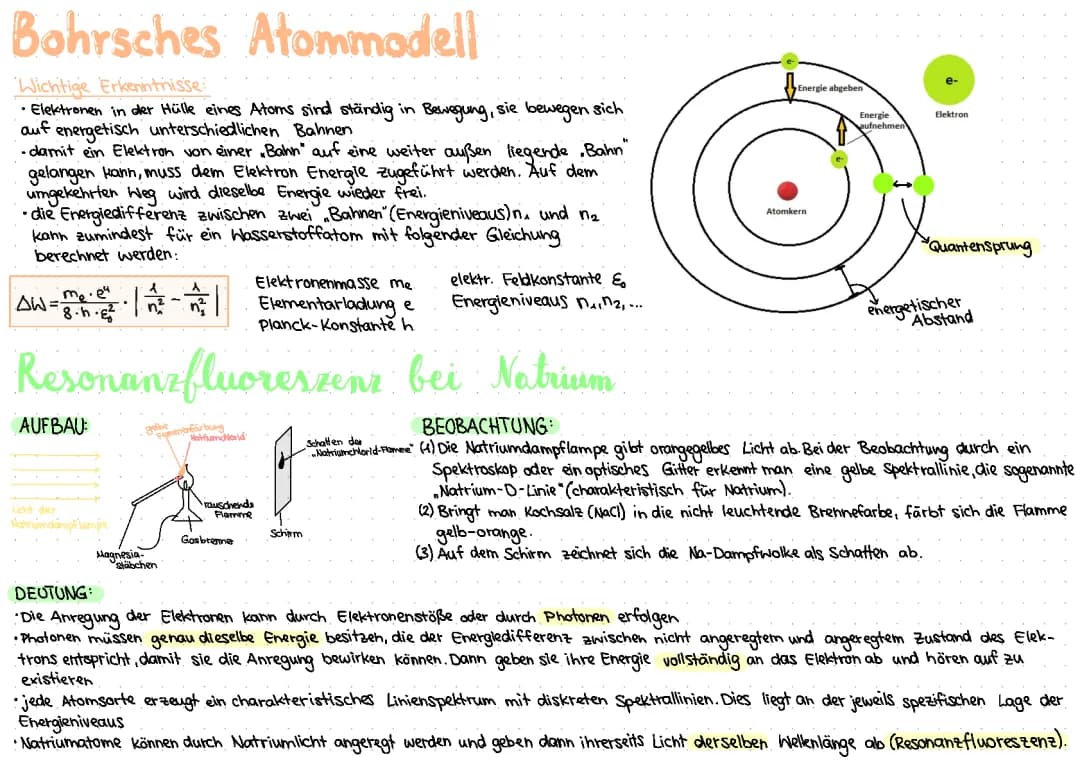 Bohrsches Atommodell
Wichtige Erkenntnisse:
· Elektronen in der Hülle eines Atoms sind ständig in Bewegung, sie bewegen sich
auf energetisch unterschiedlichen Bahnen
· damit ein Elektron von einer „Bahn" auf eine weiter außen liegende „Bahn"
gelangen kann, muss dem Elektron Energie zugeführt werden. Auf dem
umgekehrten Weg wird dieselbe Energie wieder frei.
· die Energiedifferenz zwischen zwei „Bahnen" (Energieniveaus) n₁ und n₂
kann zumindest für ein Wasserstoffatom mit folgender Gleichung
berechnet werden:
ΔW = mₑ · e⁴ / 8 · h · ε₀² · | 1/n₁² - 1/n₂² |
Elektronenmasse me
Elementarladung e
Planck-Konstante h
elektr. Feldkonstante ε₀
Energieniveaus n₁, n₂, ...
e-
Energie abgeben
Energie
aufnehmen
e-
Atomkern
e-
Elektron
Quantensprung
energetischer
Abstand
Resonanzfluoreszenz bei Natrium
AUFBAU:
gelbe
Flammenfärbung
Natriumchlorid
Licht der
Natriumdampflampe
Magnesia-
stäbchen
rauschende
Flamme
Gasbrenner
Schirm
Schatten der
„Natriumchlorid-Flamme"
BEOBACHTUNG:
(1) Die Natriumdampflampe gibt orangegelbes Licht ab. Bei der Beobachtung durch ein
Spektroskop oder ein optisches Gitter erkennt man eine gelbe Spektrallinie, die sogenannte
„Natrium-D-Linie" (charakteristisch für Natrium).
(2) Bringt man Kochsalz (NaCl) in die nicht leuchtende Brennefarbe, färbt sich die Flamme
gelb-orange.
(3) Auf dem Schirm zeichnet sich die Na-Dampfwolke als Schatten ab.
DEUTUNG:
· Die Anregung der Elektronen kann durch Elektronenstöße oder durch Photonen erfolgen
· Photonen müssen genau dieselbe Energie besitzen, die der Energiedifferenz zwischen nicht angeregtem und angeregtem Zustand des Elek-
trons entspricht, damit sie die Anregung bewirken können. Dann geben sie ihre Energie vollständig an das Elektron ab und hören auf zu
existieren
· jede Atomsorte erzeugt ein charakteristisches Linienspektrum mit diskreten Spektrallinien. Dies liegt an der jeweils spezifischen Lage der
Energieniveaus
· Natriumatome können durch Natriumlicht angeregt werden und geben dann ihrerseits Licht derselben Wellenlänge ab (Resonanzfluoreszenz).